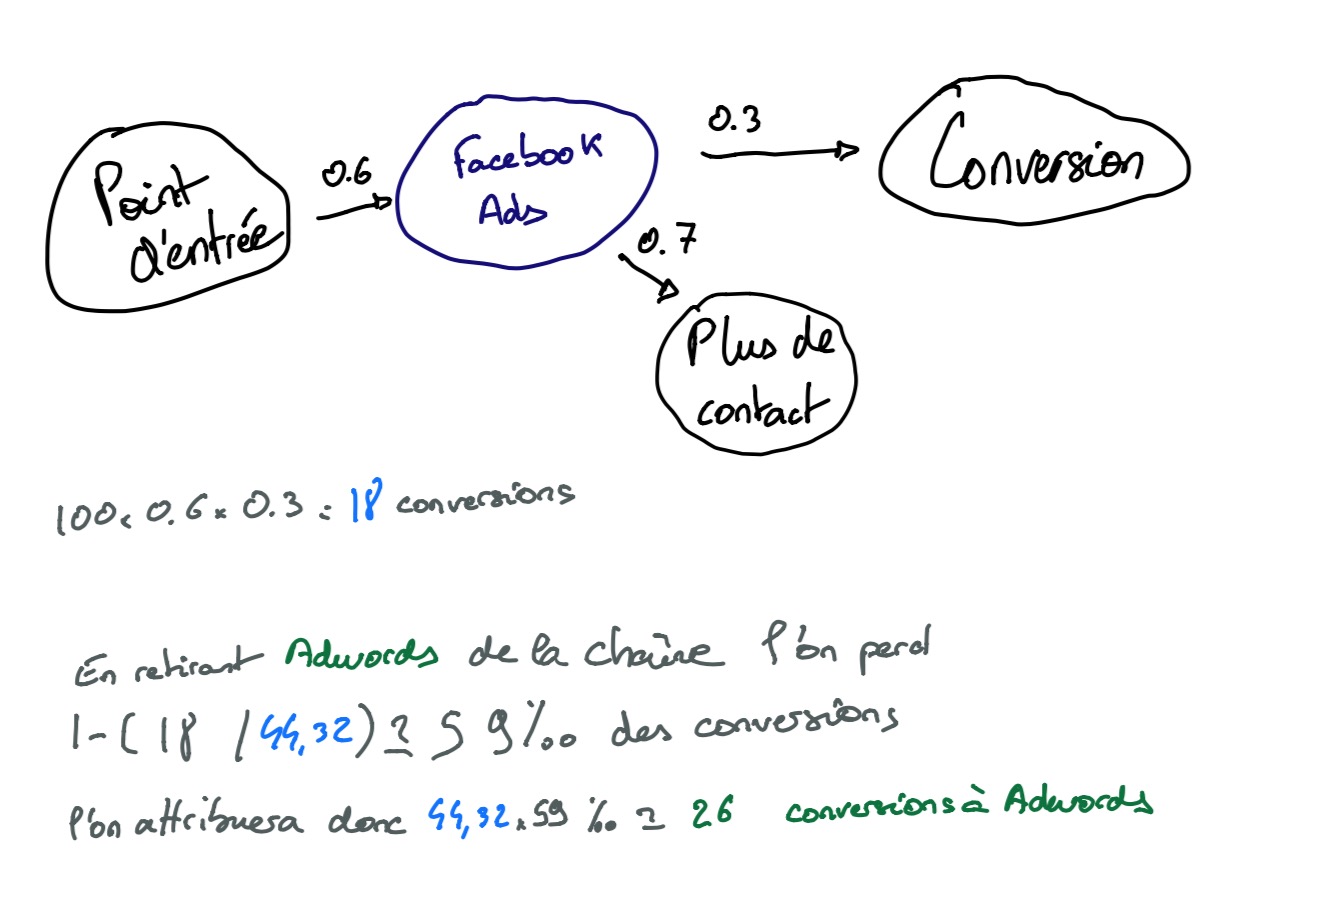 Point
d'entrée
0.6
Facebook
Ads
0.3
Conversion
0.7
Plus de
contact
100 x 0.6 x 0.3 = 18 conversions
En retirant Adwords de la chaîne l'on perd
1-(18 / 44,32) ≃ 59 % des conversions
l'on attribuera donc 44,32 x 59 % ≃ 26 conversions à Adwords